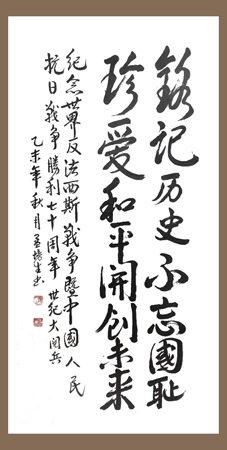 銘记历史不忘國耻
珍爱和平開创未来
纪念世界反法西斯战争暨中國人民
抗日战争勝利七十周年世纪大阅兵
乙未年秋月